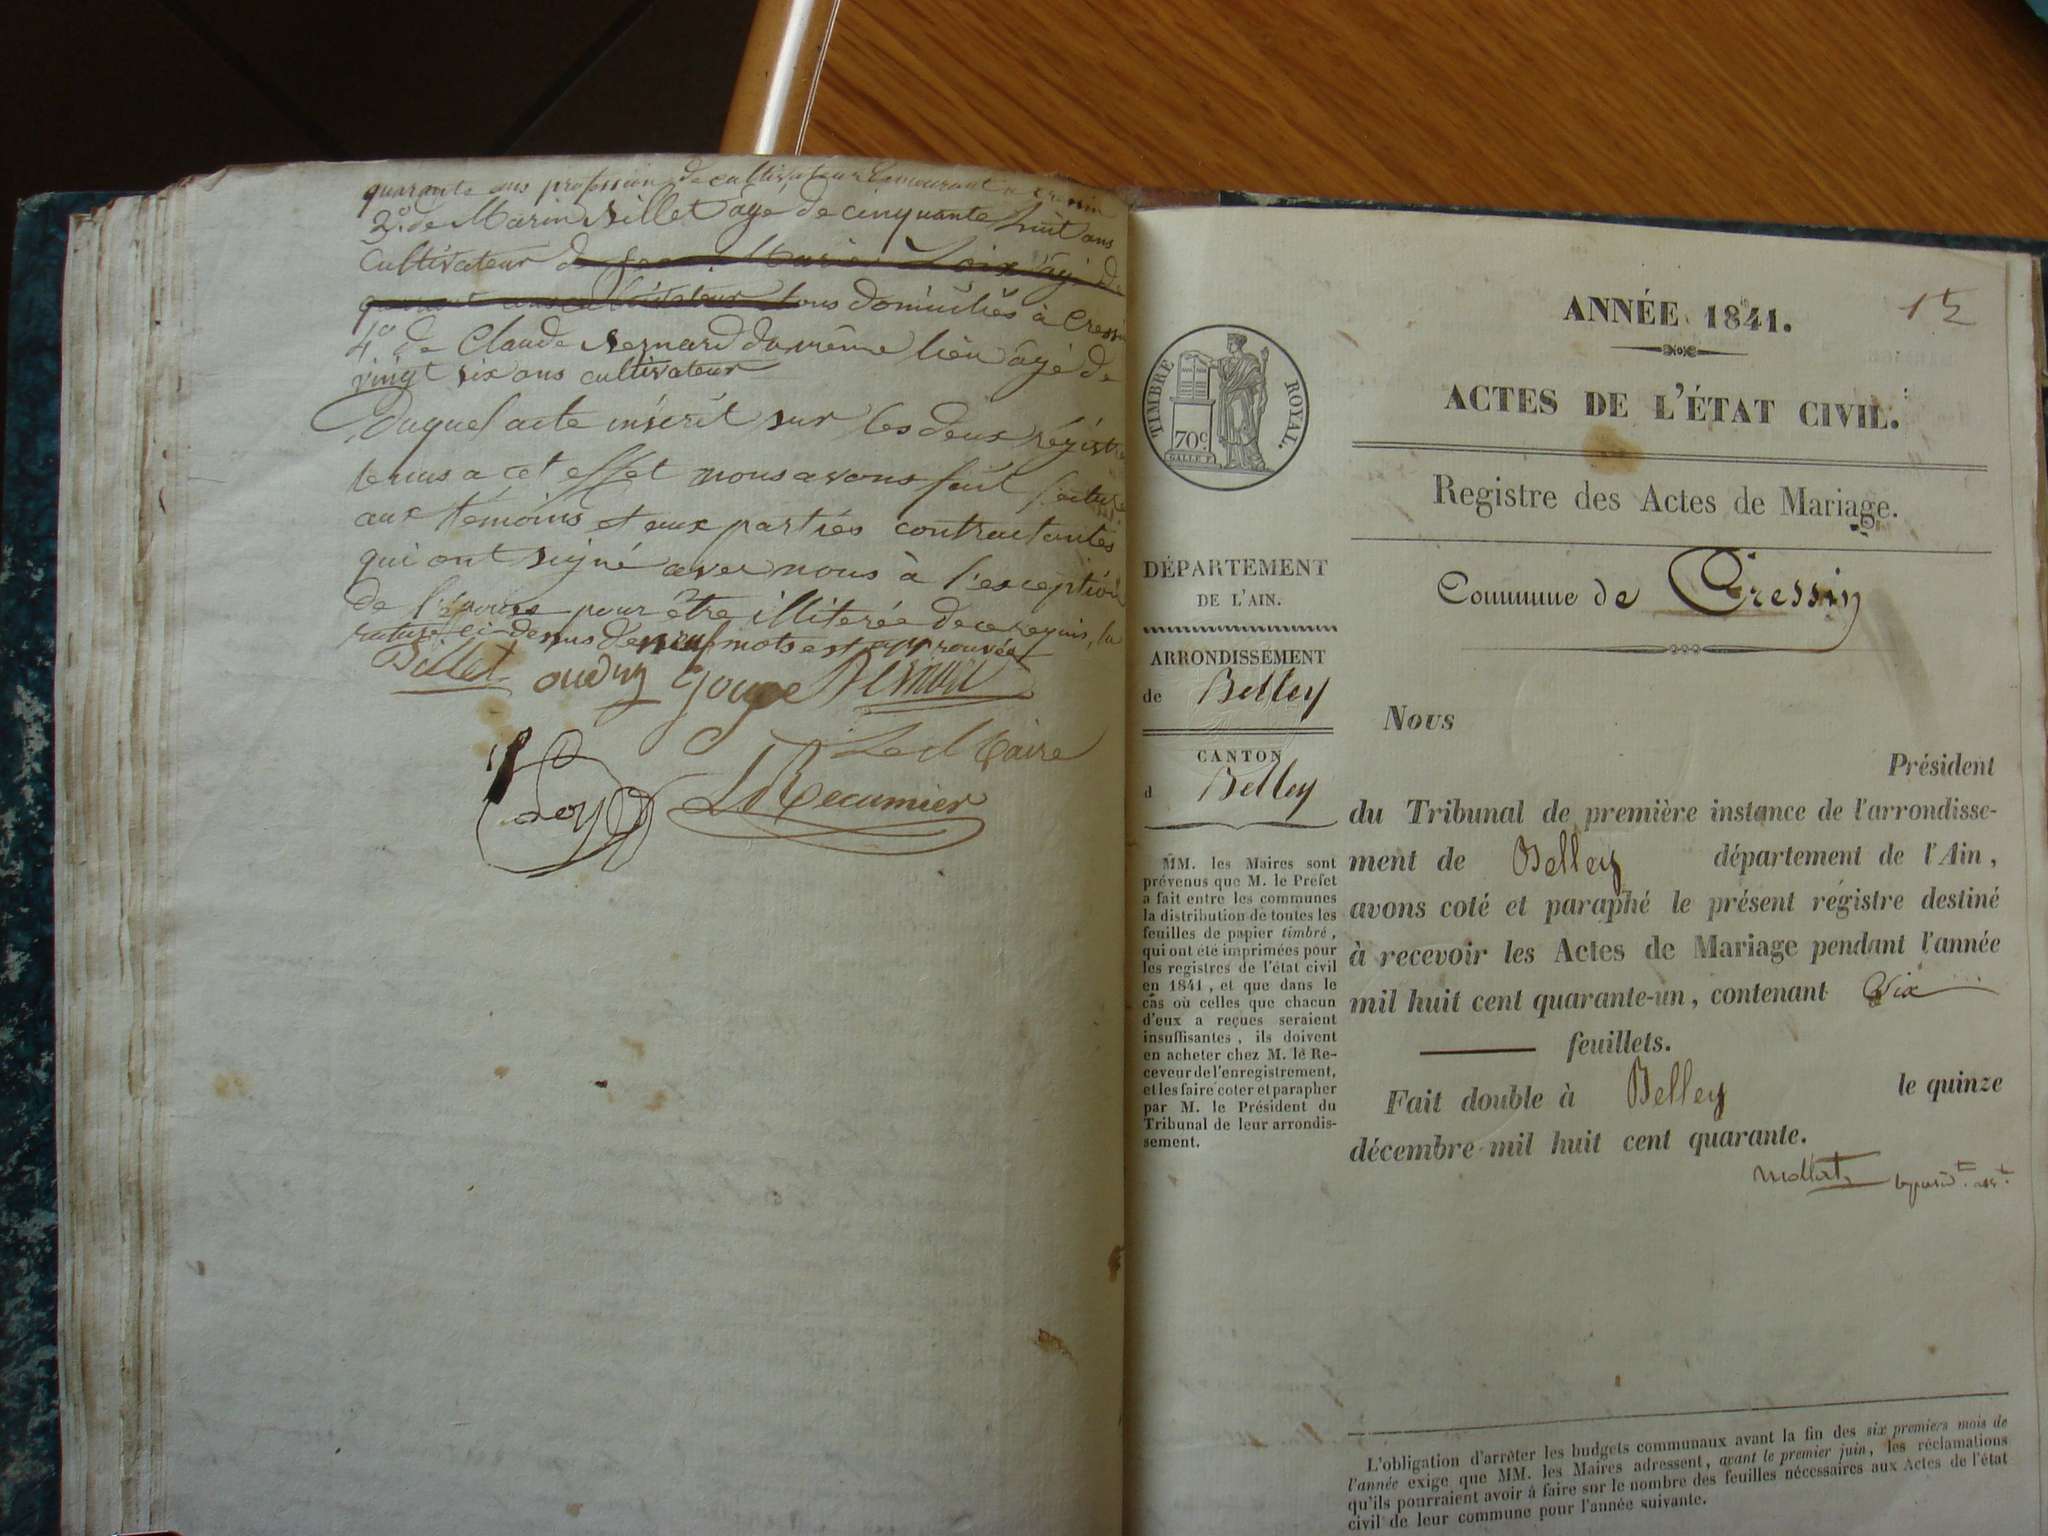 quarante ans profession de cultivateur demeurant a Cressin
3.º de Marin Billet âgé de cinquante huit ans
cultivateur de Marin Loix âgé de
tous domiciliés à Cressin
4.º de Claude Bernard du même lieu âgé de
vingt six ans cultivateur
Duquel acte inscrit sur les deux régistres
tenus a cet effet nous avons fait lecture
aux témoins et aux parties contractantes
qui ont signé avec nous à l'exception
de l'épouse pour être illiterée de ce requis, la
rature ci-dessus de neuf mots est approuvée
Billet oudin gouge
Le Maire
Récamier
ANNÉE 1841.
ACTES DE L'ÉTAT CIVIL.
Registre des Actes de Mariage.
Commune de Cressin
TIMBRE ROYAL.
70c
GALLE F.
DÉPARTEMENT
DE L'AIN.
ARRONDISSEMENT
de Belley
CANTON
d Belley
MM. les Maires sont
prévenus que M. le Préfet
a fait entre les communes
la distribution de toutes les
feuilles de papier timbré,
qui ont été imprimées pour
les registres de l'état civil
en 1841, et que dans le
cas où celles que chacun
d'eux a reçues seraient
insuffisantes, ils doivent
en acheter chez M. le Re-
ceveur de l'enregistrement,
et les faire coter et parapher
par M. le Président du
Tribunal de leur arrondis-
sement.
Nous
Président
du Tribunal de première instance de l'arrondisse-
ment de Belley département de l'Ain,
avons coté et paraphé le présent régistre destiné
à recevoir les Actes de Mariage pendant l'année
mil huit cent quarante-un, contenant Six
feuillets.
Fait double à Belley le quinze
décembre mil huit cent quarante.
L'obligation d'arrêter les budgets communaux avant la fin des six premiers mois de
l'année exige que MM. les Maires adressent, avant le premier juin, les réclamations
qu'ils pourraient avoir à faire sur le nombre des feuilles nécessaires aux Actes de l'état
civil de leur commune pour l'année suivante.